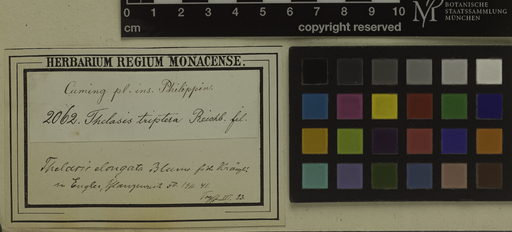 0 1 2 3 4 5 6 7 8 9 10
cm copyright reserved
BOTANISCHE
STAATSSAMMLUNG
MÜNCHEN
HERBARIUM REGIUM MONACENSE.
Cuming pl. ins. Philippin.
2062. Thelasis triptera Reichb. fil.
Thelasis elongata Blume fide
in Engler, Pflanzenreich 50